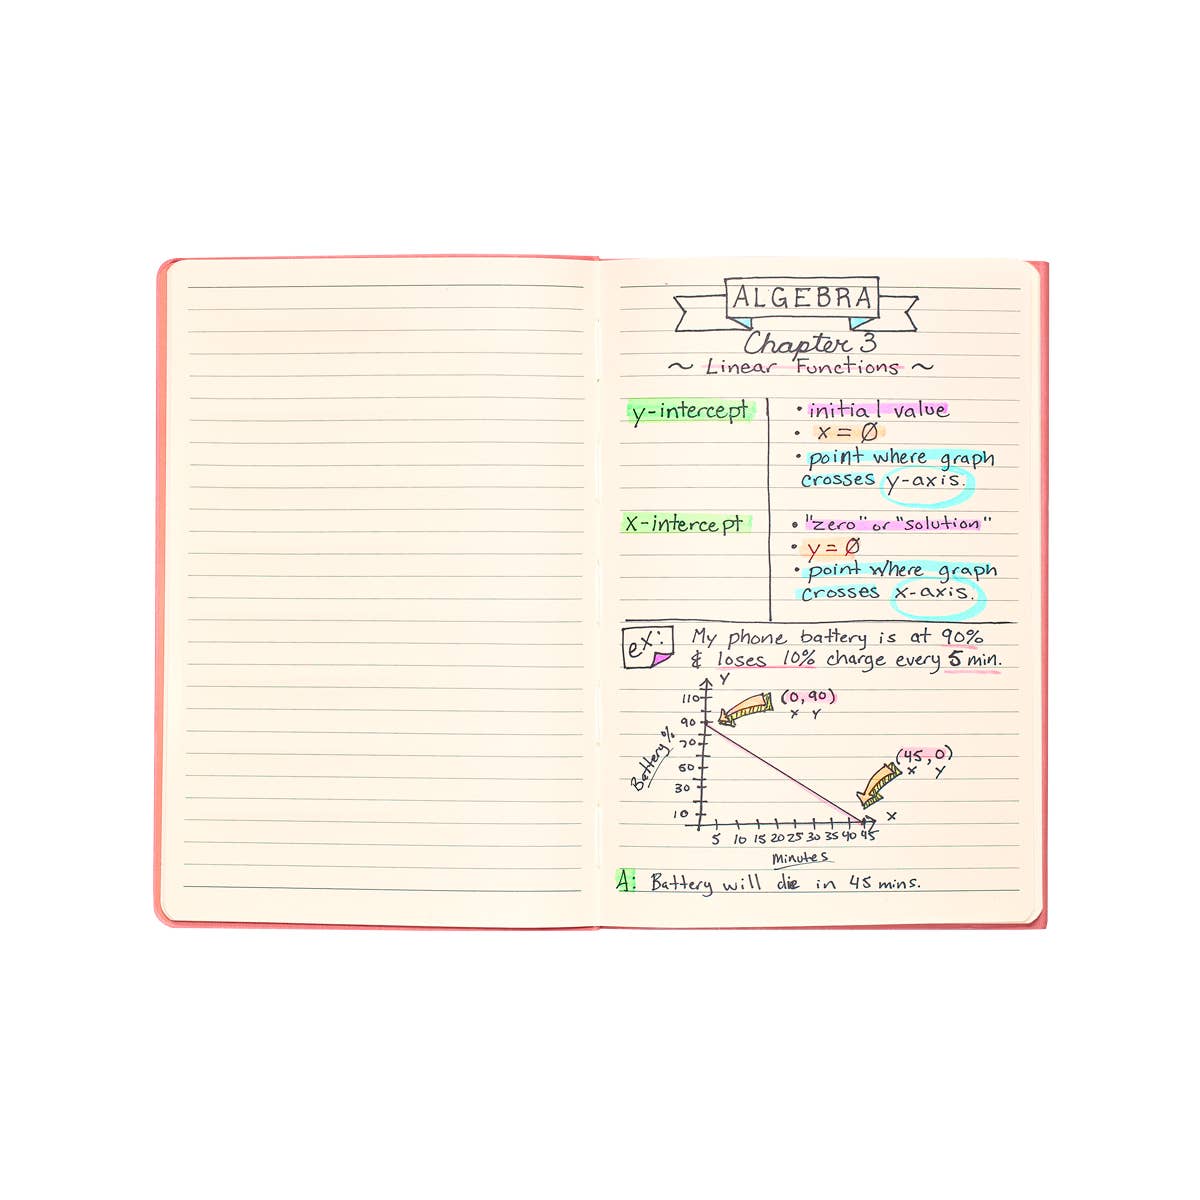 ALGEBRA
Chapter 3
~ Linear Functions ~
y-intercept
• initial value
• x = Ø
• point where graph
crosses y-axis.
x-intercept
• "zero" or "solution"
• y = Ø
• point where graph
crosses x-axis.
ex:
My phone battery is at 90%
& loses 10% charge every 5 min.
Y
110
(0, 90)
X Y
90
70
50
30
10
Battery %
(45, 0)
X Y
X
5 10 15 20 25 30 35 40 45
Minutes
A: Battery will die in 45 mins.